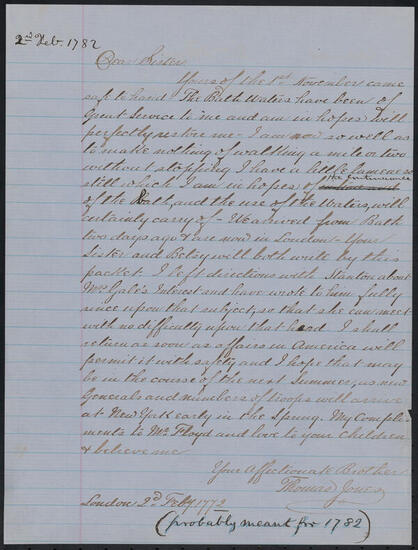 2nd Feb. 1782
Dear Sister
Yours of the 1st November came
safe to hand - The Bath Waters have been of
Great Service to me and am in hopes will
perfectly restore me - I am now so well as
to make nothing of walking a mile or two
without stopping I have a little lameness
still which I am in hopes of the continuance
of the Bath, and the use of the Waters, will
certainly carry of - We arrived from Bath
two days ago & are now in London - Your
Sister and Betsey will both write by this
packet. I left directions with Stanton about
Mrs Gale's Interest and have wrote to him fully
since upon that subject, so that she can meet
with no difficulty upon that head. I shall
return as soon as affairs in America will
permit it with safety and I hope that may
be in the course of the next Summer, as new
Generals and numbers of troops will arrive
at New York early in the Spring. My Compli-
ments to Mr Floyd and love to your Children
& believe me
Your Affectionate Brother
Thomas Jones
London 2d Feby 1772
(probably meant for 1782)